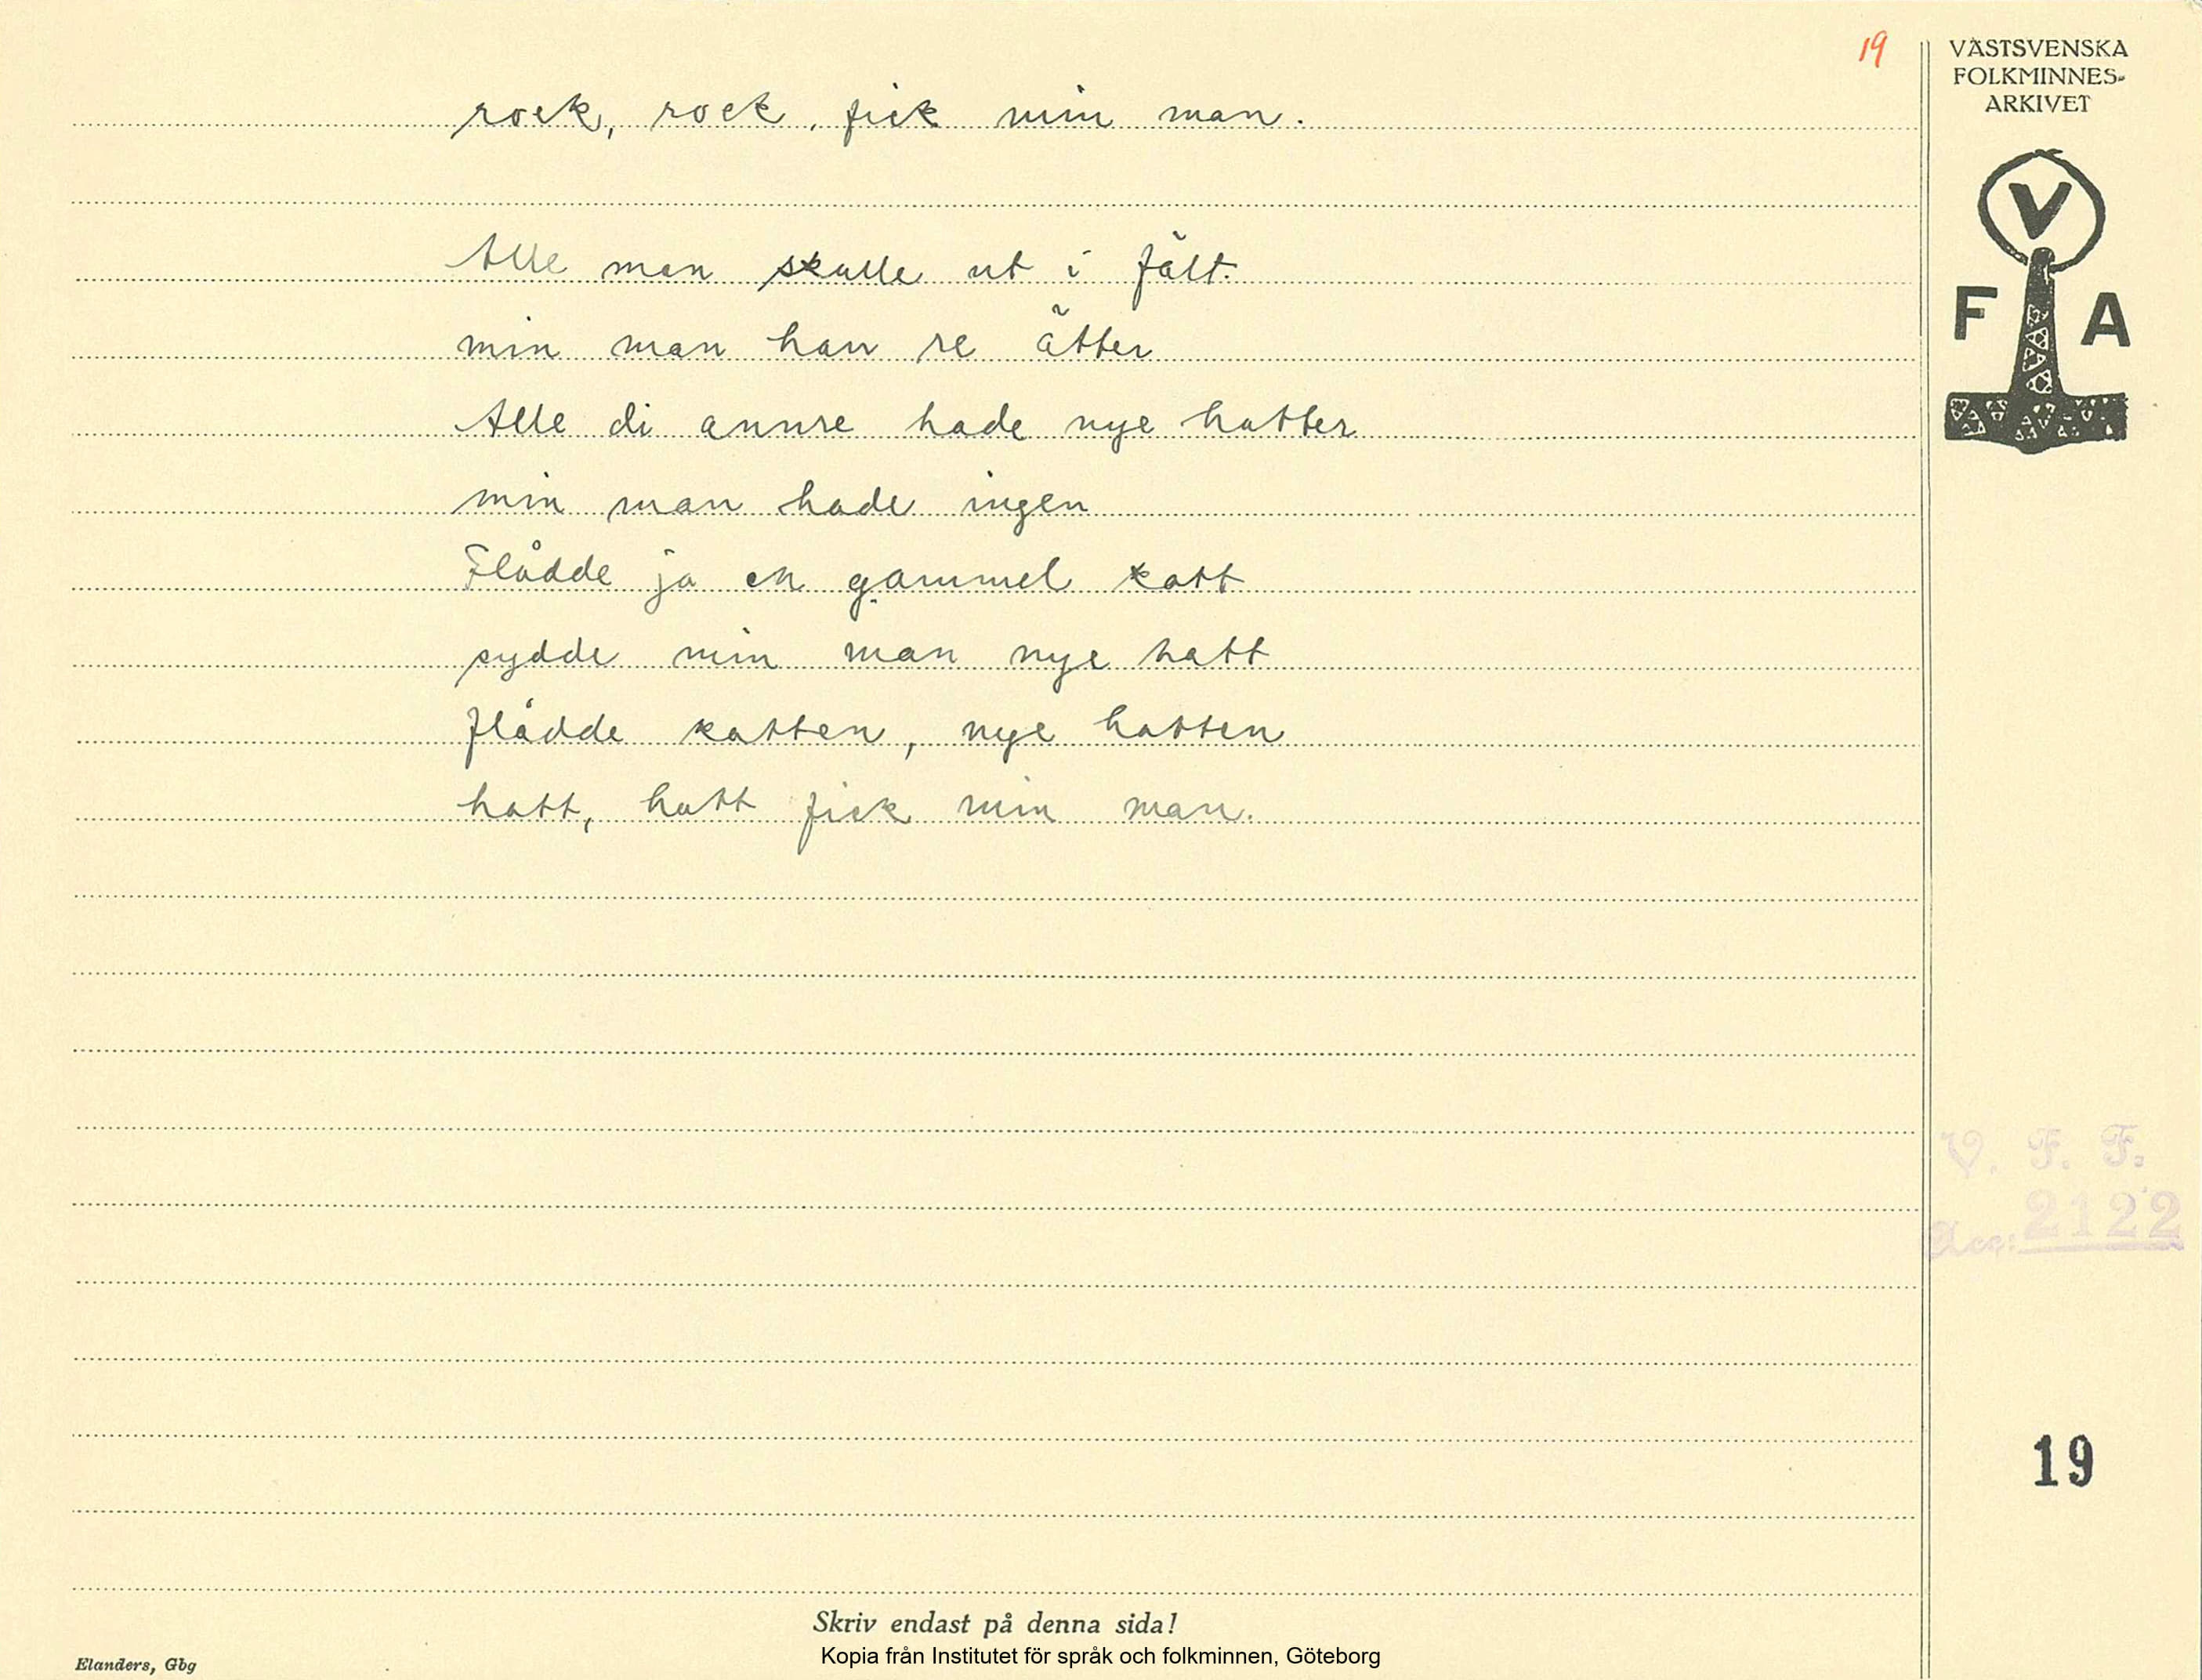 19
VÄSTSVENSKA
FOLKMINNES-
ARKIVET
V
F A
rock, rock, fick min man.
Alle man skulle ut i fält.
min man han re ätter
Alle di annre hade nye hatter
min man hade ingen
Flådde ja en gammel katt
sydde min man nye hatt
flådde katten, nye hatten
hatt, hatt fick min man.
V. F. F.
Acc: 2122
19
Skriv endast på denna sida!
Kopia från Institutet för språk och folkminnen, Göteborg
Elanders, Gbg